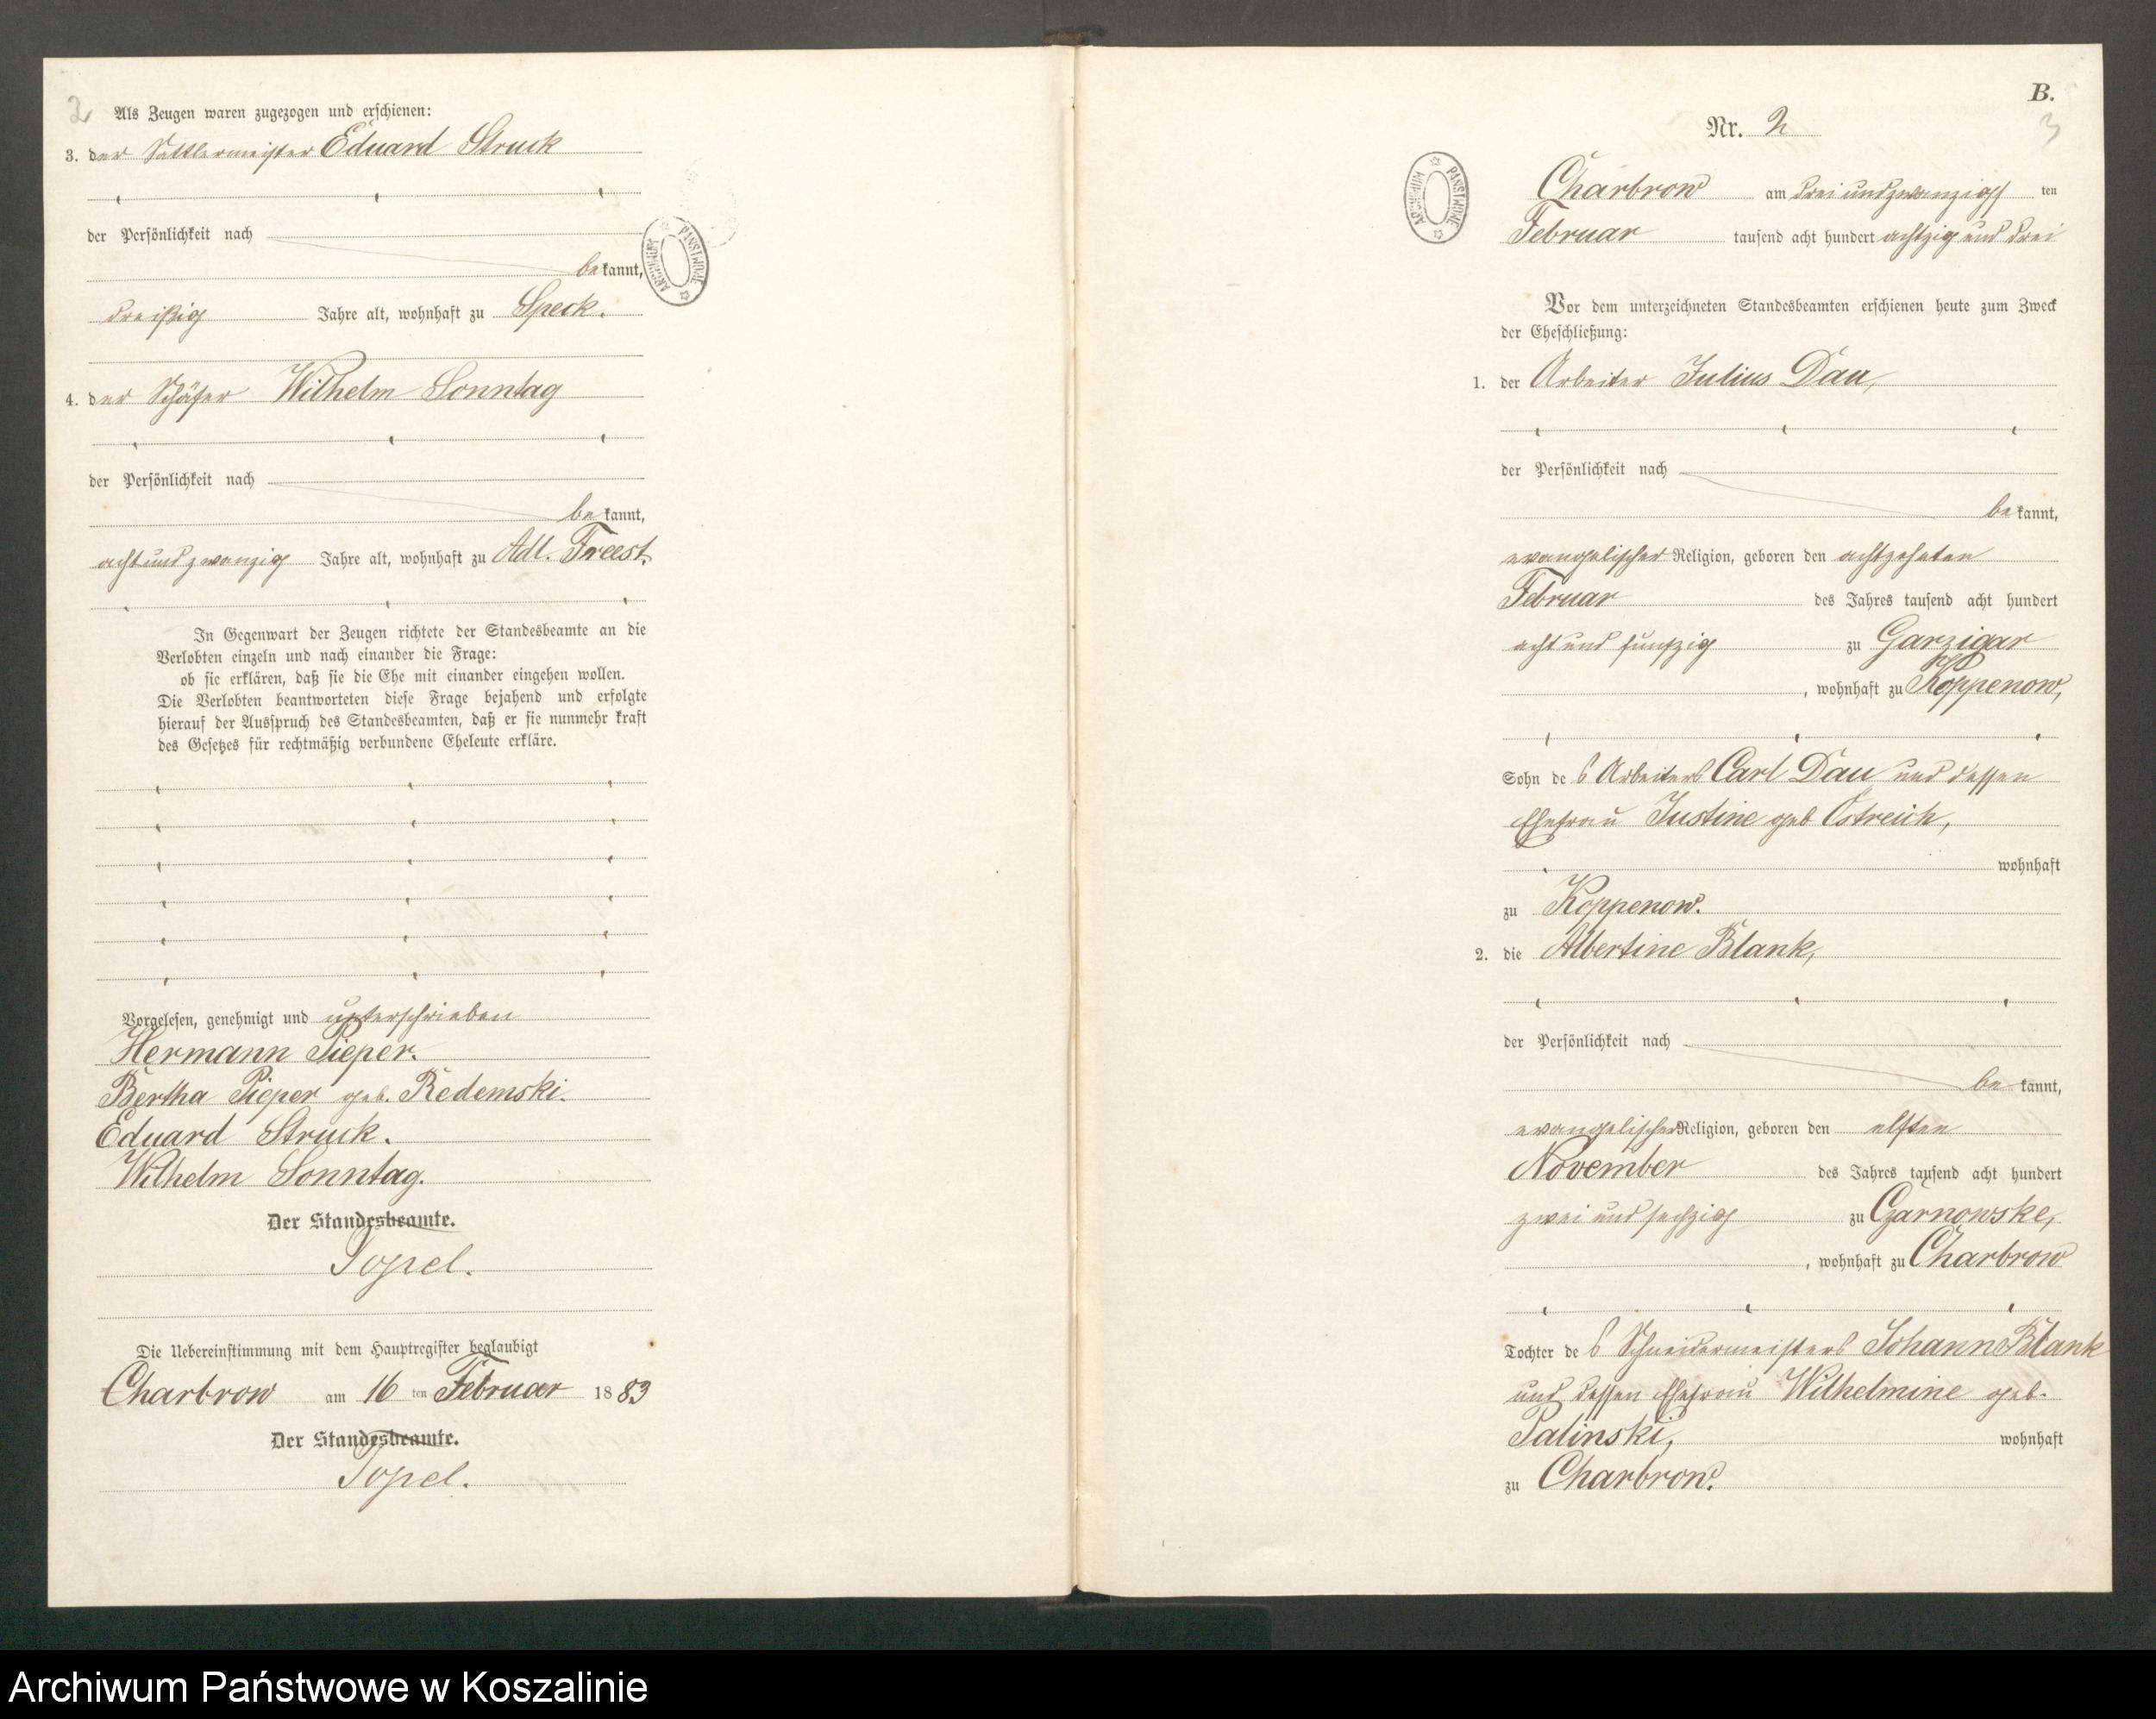 2
Als Zeugen waren zugezogen und erschienen:
3. der Sattlermeister Eduard Struck
der Persönlichkeit nach
bekannt,
dreißig Jahre alt, wohnhaft zu Speck.
4. der Schäfer Wilhelm Sonntag
der Persönlichkeit nach
bekannt,
acht und zwanzig Jahre alt, wohnhaft zu Adl. Freest,
In Gegenwart der Zeugen richtete der Standesbeamte an die
Verlobten einzeln und nach einander die Frage:
ob sie erklären, daß sie die Ehe mit einander eingehen wollen.
Die Verlobten beantworteten diese Frage bejahend und erfolgte
hierauf der Ausspruch des Standesbeamten, daß er sie nunmehr kraft
des Gesetzes für rechtmäßig verbundene Eheleute erkläre.
Vorgelesen, genehmigt und unterschrieben
Hermann Pieper.
Bertha Pieper geb. Redemski.
Eduard Struck.
Wilhelm Sonntag.
Der Standesbeamte.
Popel.
Die Uebereinstimmung mit dem Hauptregister beglaubigt
Charbrow am 16 ten Februar 1883
Der Standesbeamte.
Popel.
ARCHIWUM PAŃSTWOWE
B.
3
Nr. 2
ARCHIWUM PAŃSTWOWE
Charbrow am drei und zwanzigsten
Februar tausend acht hundert achtzig und drei
Vor dem unterzeichneten Standesbeamten erschienen heute zum Zweck
der Eheschließung:
1. der Arbeiter Julius Dau,
der Persönlichkeit nach
bekannt,
evangelischer Religion, geboren den achtzehnten
Februar des Jahres tausend acht hundert
acht und funfzig zu Garzigar
, wohnhaft zu Koppenow,
Sohn des Arbeiters Carl Dau und dessen
Ehefrau Justine geb Östreich,
wohnhaft
zu Koppenow.
2. die Albertine Blank,
der Persönlichkeit nach
bekannt,
evangelischer Religion, geboren den elften
November des Jahres tausend acht hundert
zwei und sechzig zu Czarnowske,
, wohnhaft zu Charbrow
Tochter des Schneidermeisters Johann Blank
und dessen Ehefrau Wilhelmine geb.
Palinski, wohnhaft
zu Charbrow.
Archiwum Państwowe w Koszalinie